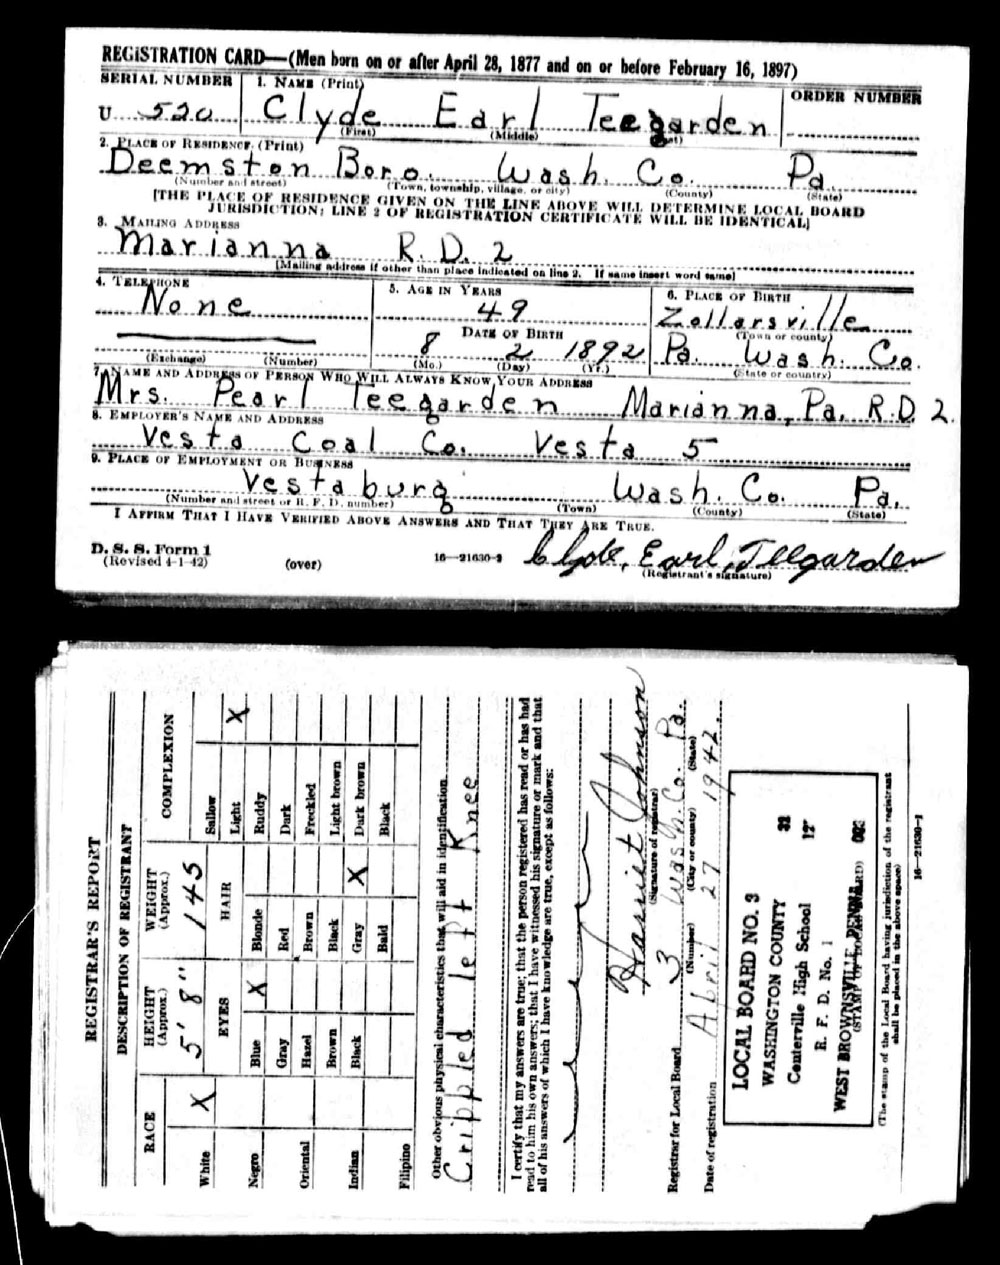 REGISTRATION CARD—(Men born on or after April 28, 1877 and on or before February 16, 1897)
SERIAL NUMBER 1. NAME (Print) ORDER NUMBER
U 520 Clyde Earl Teegarden
(First) (Middle) (Last)
2. PLACE OF RESIDENCE (Print)
Deemston Boro. Wash. Co. Pa.
(Number and street) (Town, township, village, or city) (County) (State)
[THE PLACE OF RESIDENCE GIVEN ON THE LINE ABOVE WILL DETERMINE LOCAL BOARD
JURISDICTION; LINE 2 OF REGISTRATION CERTIFICATE WILL BE IDENTICAL]
3. MAILING ADDRESS
Marianna R.D. 2
[Mailing address if other than place indicated on line 2. If same insert word same]
4. TELEPHONE 5. AGE IN YEARS 6. PLACE OF BIRTH
None 49 Zollarsville
DATE OF BIRTH (Town or county)
8 2 1892 Pa. Wash. Co.
(Exchange) (Number) (Mo.) (Day) (Yr.) (State or country)
7. NAME AND ADDRESS OF PERSON WHO WILL ALWAYS KNOW YOUR ADDRESS
Mrs. Pearl Teegarden Marianna, Pa. R.D. 2.
8. EMPLOYER'S NAME AND ADDRESS
Vesta Coal Co. Vesta 5
9. PLACE OF EMPLOYMENT OR BUSINESS
Vestaburg Wash. Co. Pa.
(Number and street or R. F. D. number) (Town) (County) (State)
I AFFIRM THAT I HAVE VERIFIED ABOVE ANSWERS AND THAT THEY ARE TRUE.
D. S. S. Form 1
(Revised 4-1-42) (over) 16—21630-2 Clyde, Earl, Teegarden
(Registrant's signature)
REGISTRAR'S REPORT
DESCRIPTION OF REGISTRANT
RACE HEIGHT (Approx.) WEIGHT (Approx.) COMPLEXION
White X 5' 8" 145 Sallow
EYES HAIR Light X
Negro Blue X Blonde Ruddy
Gray Red Dark
Oriental Hazel Brown Freckled
Brown Black Light brown
Indian Black Gray X Dark brown
Bald Black
Filipino
Other obvious physical characteristics that will aid in identification
Crippled left Knee
I certify that my answers are true; that the person registered has read or has had
read to him his own answers; that I have witnessed his signature or mark and that
all of his answers of which I have knowledge are true, except as follows:
Harriet Johnson
(Signature of registrar)
Registrar for Local Board 3 Wash. Co. Pa.
(Number) (City or county) (State)
Date of registration April 27 1942.
LOCAL BOARD NO. 3 32
WASHINGTON COUNTY 12
Centerville High School 023
R. F. D. No. 1
WEST BROWNSVILLE, PENNA.
(STAMP OF LOCAL BOARD)
(The stamp of the Local Board having jurisdiction of the registrant
shall be placed in the above space)
16—21630-1